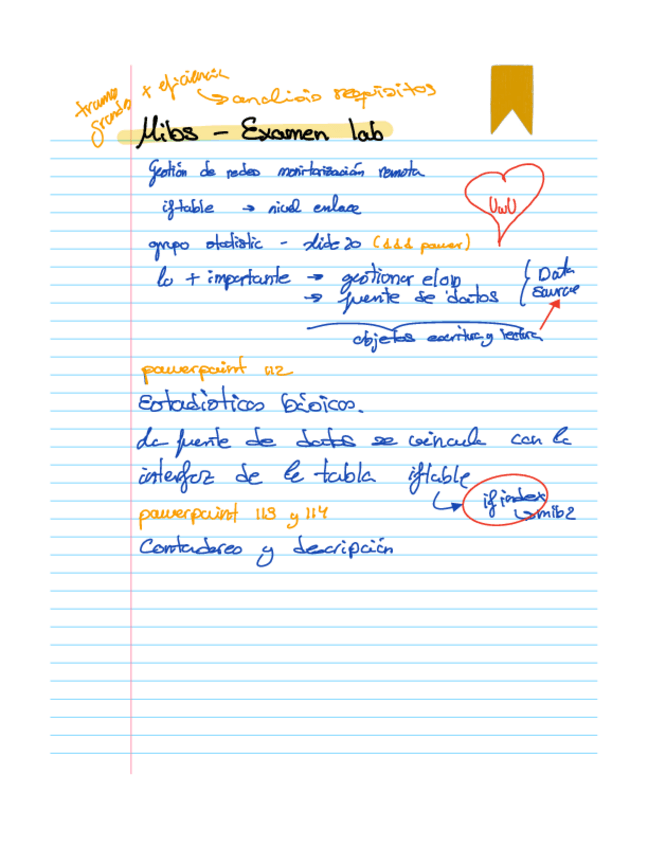 trama + eficiencia
grande ↳ analisis requisitos
Mibs – Examen lab
Gestión de redes monitorización remota
iftable → nivel enlace
UwU
grupo statistic - slide 20 (ddd power)
lo + importante → gestionar el
→ fuente de datos
Data
Source
objetos escritura y lectura
powerpoint 112
Estadísticos básicos.
La fuente de datos se vincula con la
interfaz de la tabla iftable
↳ ifindex
↳ mib2
powerpoint 113 y 114
Contadores y descripción